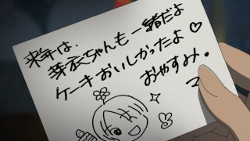 来年は、
芽衣ちゃんも一緒だよ
ケーキおいしかったよ♡
おやすみ。